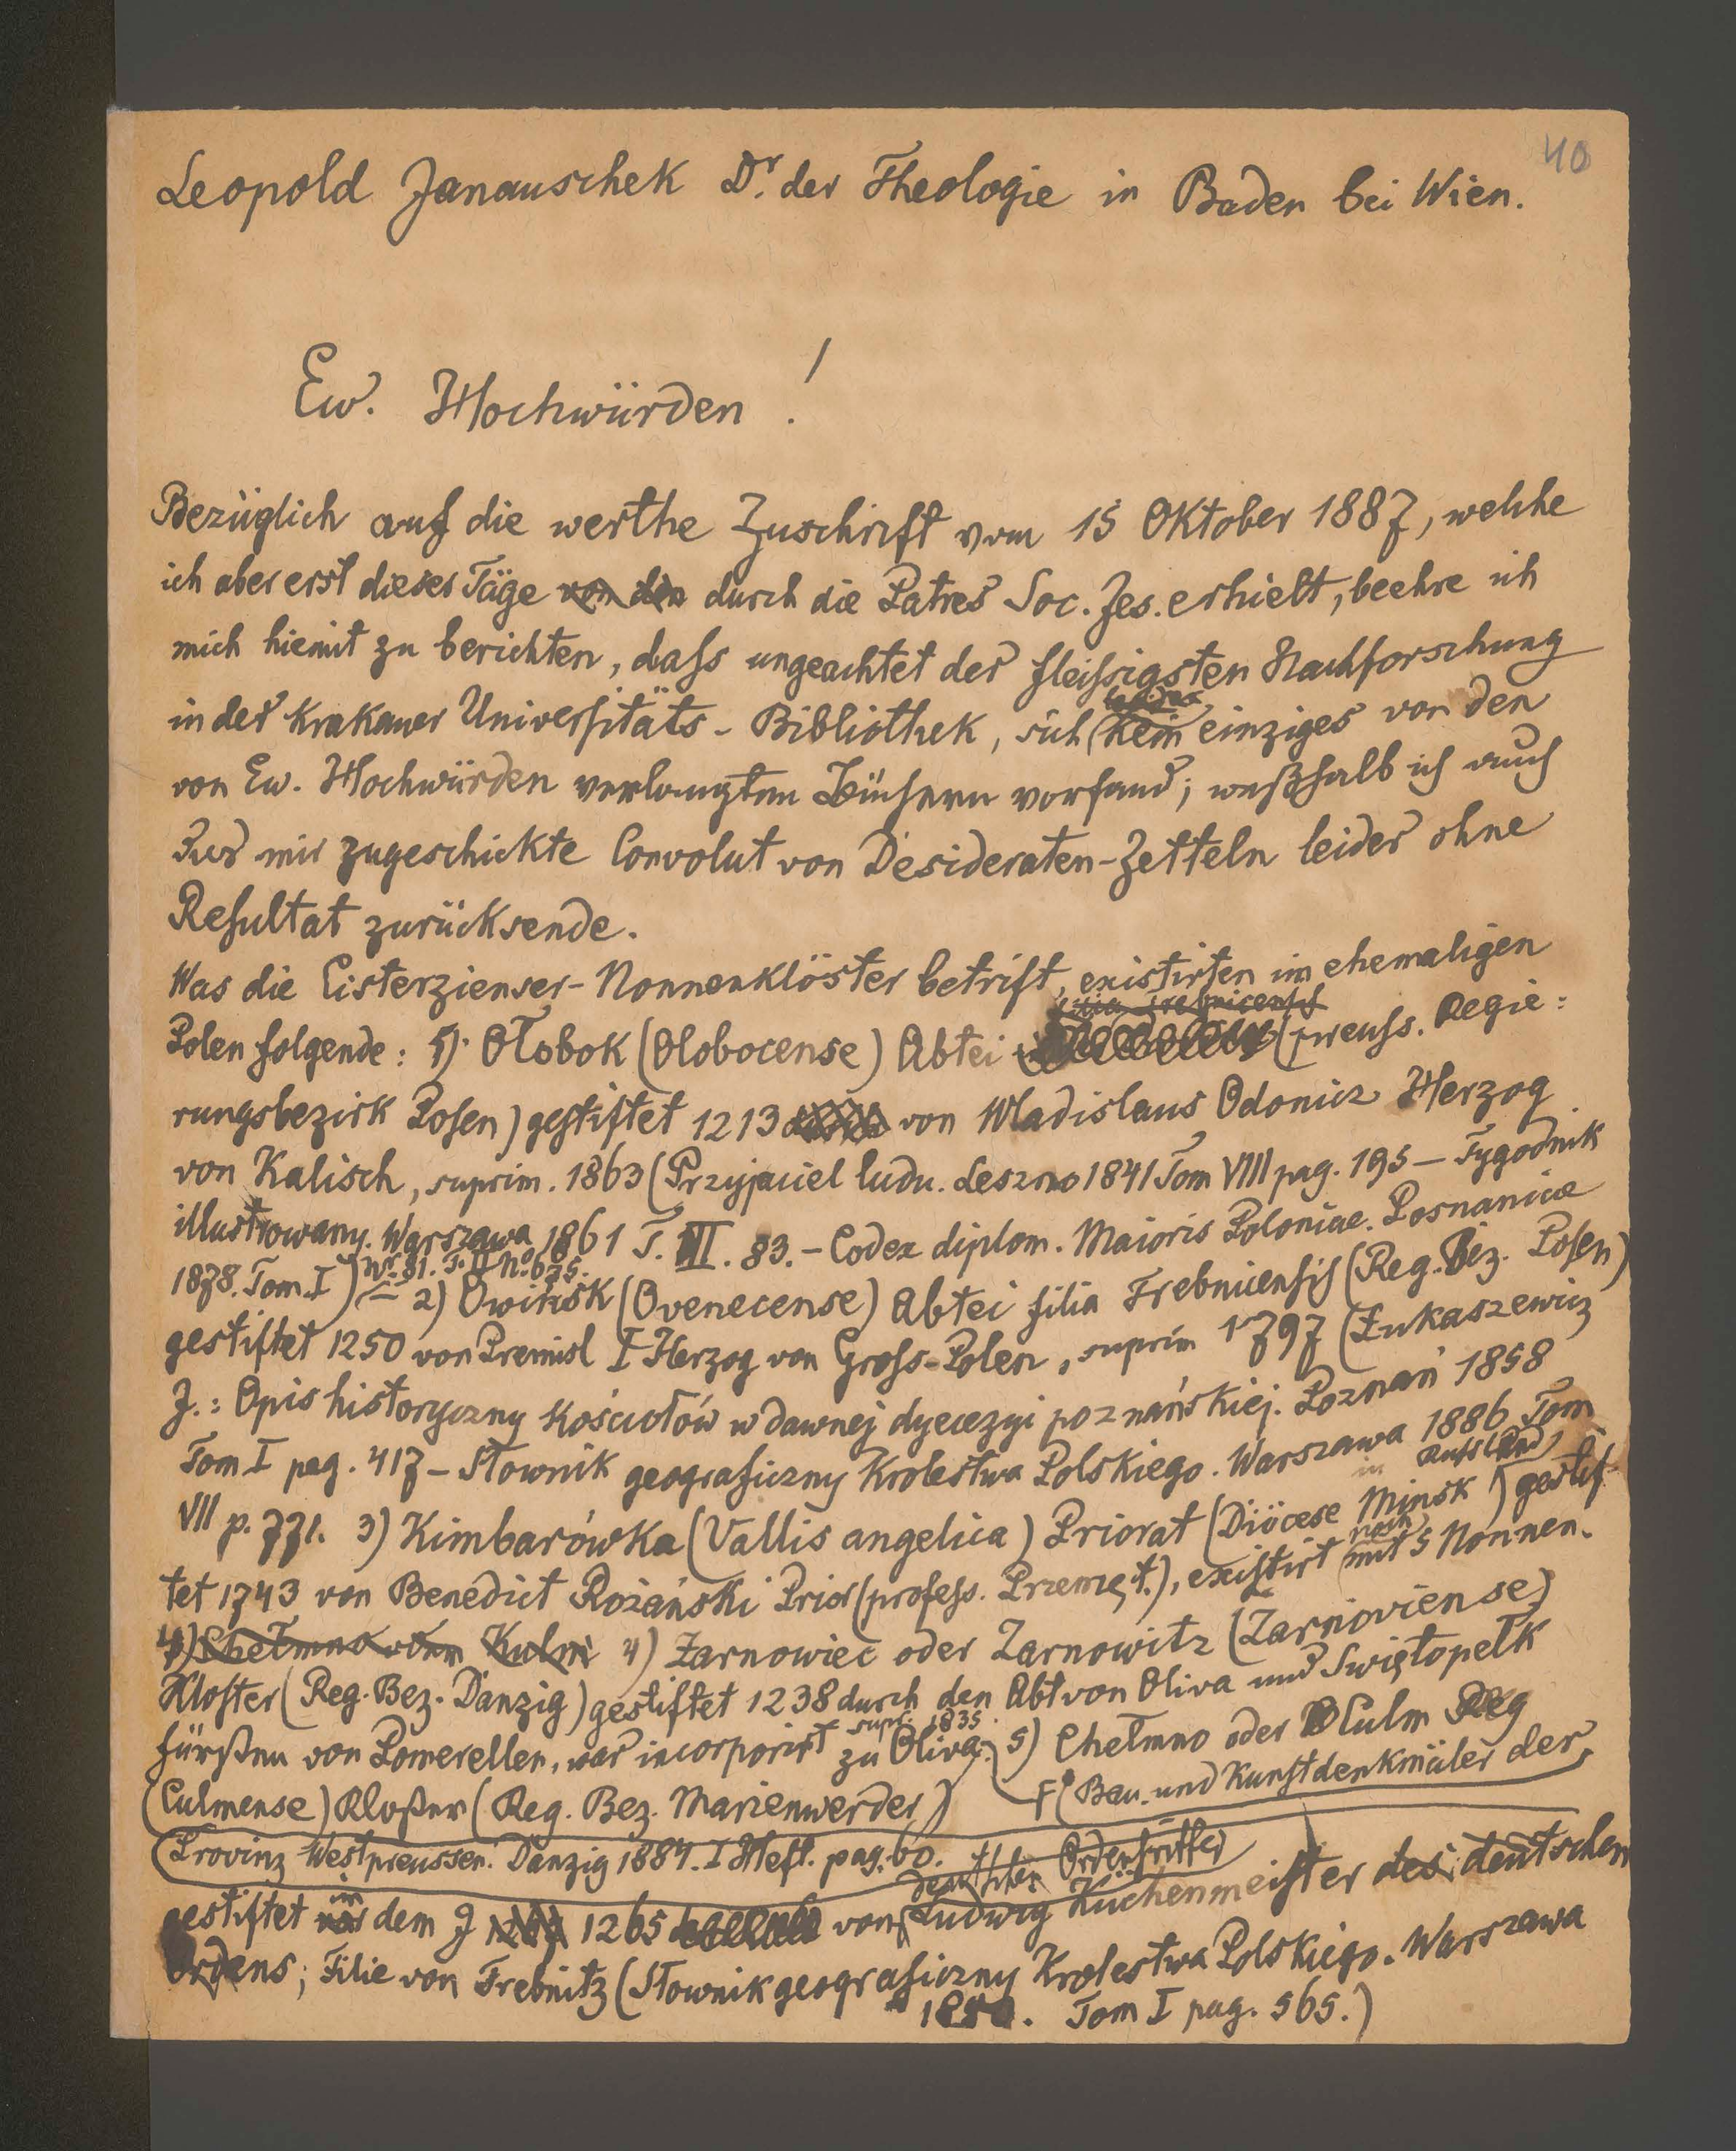 40
Leopold Janauschek Dr. der Theologie in Baden bei Wien.
Ew. Hochwürden!
Bezüglich auf die werthe Zuschrift vom 15 Oktober 1887, welche
ich aber erst dieser Täge von den durch die Patres Soc. Jes. erhielt, beehre ich
mich hiemit zu berichten, dass ungeachtet der fleissigsten Nachforschung
in der Krakauer Universitäts-Bibliothek, sich leider kein einziges von den
von Ew. Hochwürden verlangten Büchern vorfand; weßhalb ich auch
das mir zugeschickte Convolut von Desideraten-Zetteln leider ohne
Resultat zurücksende.
Was die Cisterzienser-Nonnenklöster betrift, existirten im ehemaligen
filia Trebnicensis
Polen folgende: 1). Ołobok (Olobocense) Abtei (preuss. Regie=
rungsbezirk Posen) gestiftet 1213 von Wladislaus Odonicz Herzog
von Kalisch, suprim. 1863 (Przyjaciel ludu. Leszno 1841 Tom VIII pag. 195 – Tygodnik
illustrowany. Warszawa 1861 T. III. 83. – Codex diplom. Maioris Poloniae. Posnaniae
1878. Tom. I) Nr. 81. T. II No. 675. – 2) Owinsk (Ovenecense) Abtei filia Trebnicensis (Reg. Bez. Posen)
gestiftet 1250 von Premisl I Herzog von Gross-Polen, suprim 1797 (Łukaszewicz
J.: Opis historyczny kościołów w dawnej dyecezyi poznańskiej. Poznań 1858
Tom I pag. 417 – Słownik geograficzny Krolestwa Polskiego. Warszawa 1886 Tom
VII p. 771. 3) Kimbarówka (Vallis angelica) Priorat (Diöcese Minsk in Russland) gestif-
tet 1743 von Benedict Rożański Prior (profess. Przemęt.), existirt noch mit 5 Nonnen.
4) Chełmno oder Kulm 4) Żarnowiec oder Zarnowitz (Zarnoviense)
Kloster (Reg. Bez. Danzig) gestiftet 1238 durch den Abt von Oliva und Swiętopełk
Fürsten von Pomerellen, war incorporirt zu Oliva. supr. 1835. 5) Chełmno oder Culm Reg
(Culmense) Kloster (Reg. Bez. Marienwerder) F (Bau- und Kunstdenkmäler der
Provinz Westpreussen. Danzig 1884. I Heft. pag. 60.
deutschen Ordensritter
gestiftet in dem J 1265 von Ludwig Küchenmeister des deutschen
Ordens; Filie von Trebnitz (Słownik geograficzny Krolestwa Polskiego. Warszawa
1880. Tom I pag. 565.)